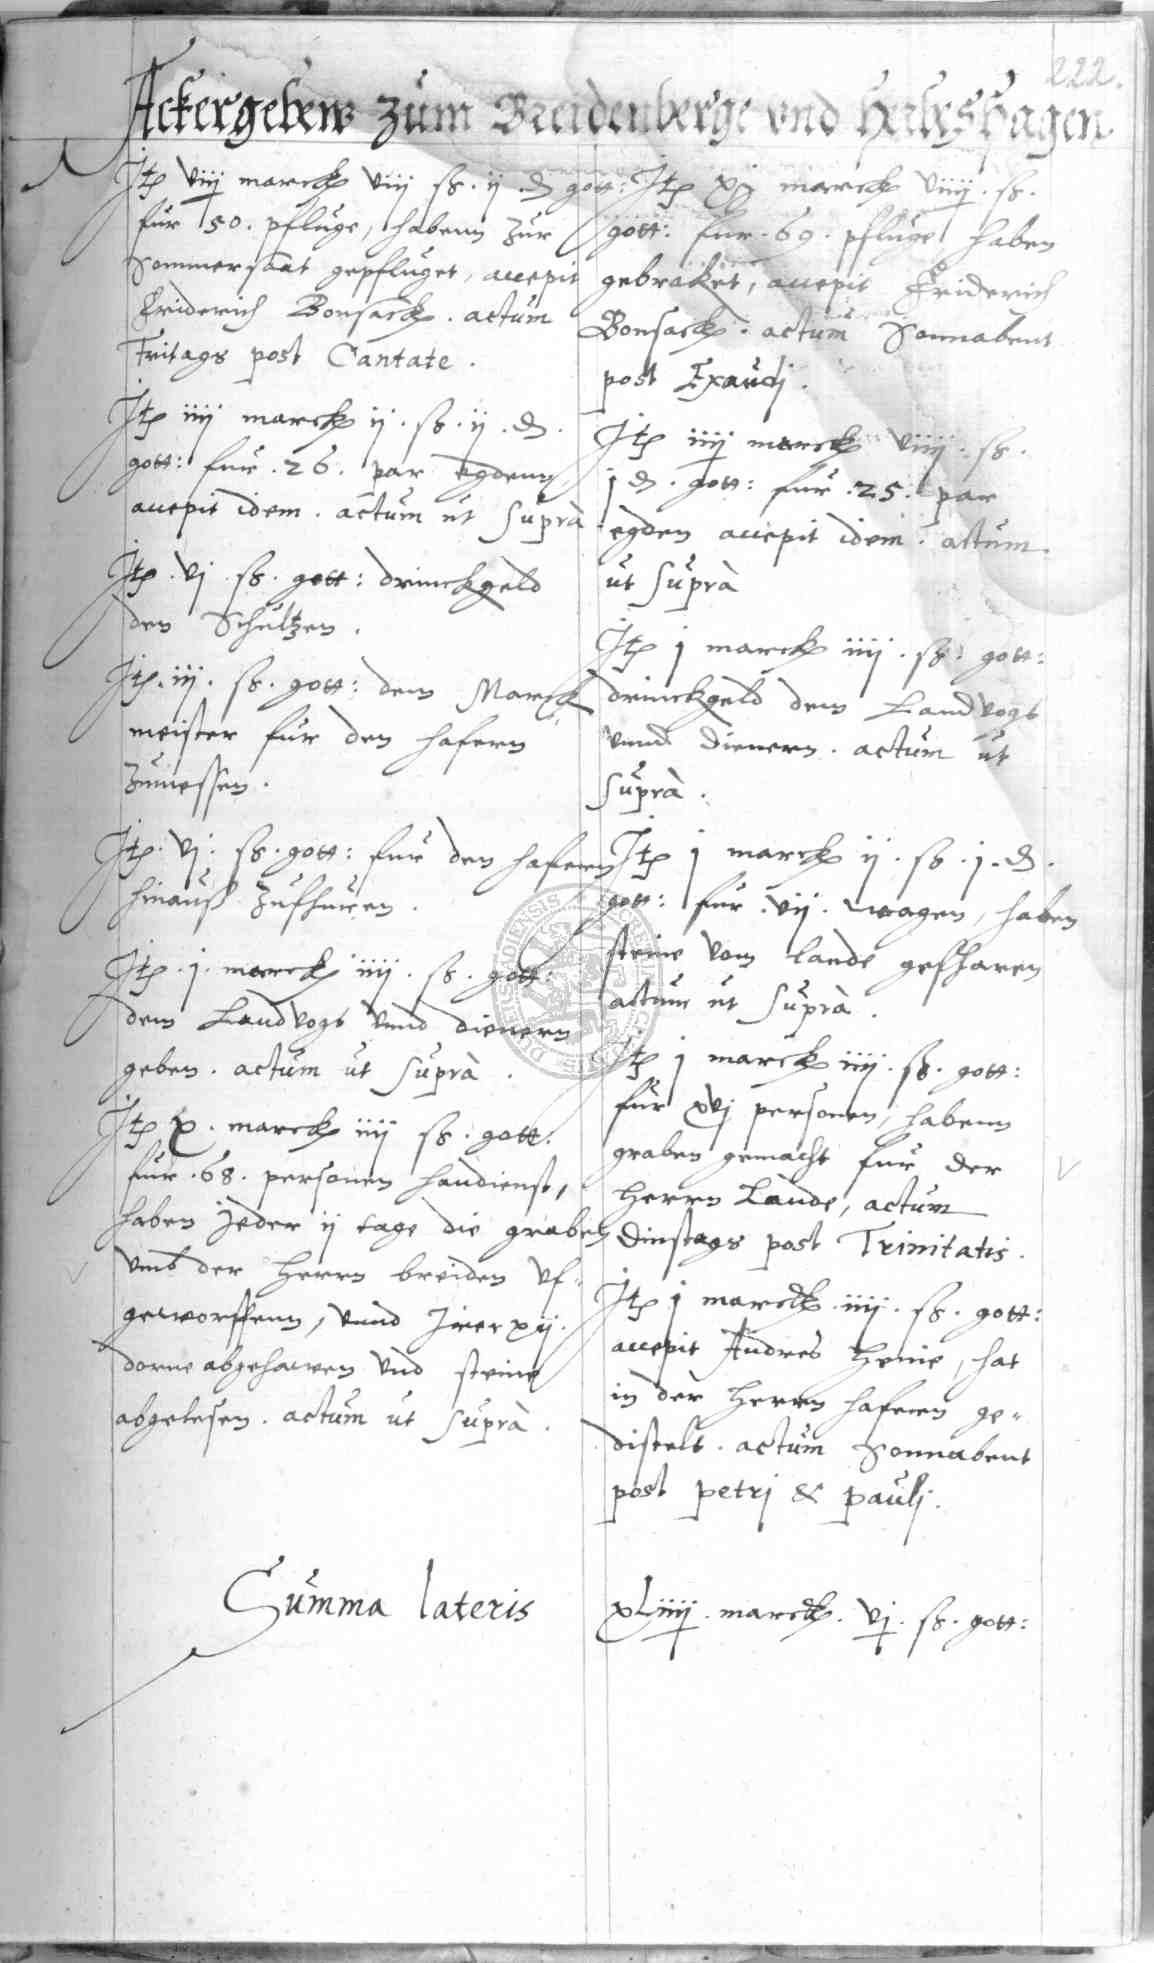 222.
Ackergebew zum Breidenberge vnd Heilyshagen
Itp viij marck viij ss. ij .d. gott:
für 50. pfluge, habenn zur
Sommersaat gepfluget, accepit
Friderich Bonsack. actum
Fritags post Cantate.
Itp iiij marck ij. ss. ij .d.
gott: fur .26. par egdenn
accepit idem. actum ut suprà
Itp. vj. ss. gott: drinckgeld
den Schultzen.
Itp. iij. ss. gott: dem Marck
meister für den hafern
zumessen.
Itp. vj. ss. gott: fur den hafern
hinauß zufhuren.
Itp. j. marck iiij. ss. gott:
dem Landvogt vnnd dienern
geben. actum ut suprà.
Itp x. marck iiij ss. gott:
fur .68. personen handienst,
haben jeder ij tage die graben
vmb der Herrn breiden vf-
geworffenn, vnnd Irer xij.
dorne abgehawen vnd steine
abgelesen. actum ut suprà.
Itp xj marck viiij. ss.
gott: fur .69. pfluge haben
gebraket, accepit Friderich
Bonsack. actum Sonnabent
post Exaudj.
Itp iiij marck viiij. ss.
j d. gott: fur .25. par
egden accepit idem. actum
ut suprà
Itp j marck iiij. ss. gott:
drinckgeld dem Landvogt
vnnd dienern. actum ut
suprà.
Itp j marck ij. ss. j. d.
gott: fur .vij. wagen, haben
steine vom lande gefharen
actum ut suprà.
Itp j marck iiij. ss. gott:
für xvj personen, habenn
graben gemacht fur der
Herrn Lande, actum
Dinstags post Trinitatis.
Itp j marck .iiij. ss. gott:
accepit Andres Henie, hat
in der Herrn hafern ge-
distelt. actum Sonnabent
post petrj & paulj.
Summa lateris xLiiij. marck. vj. ss. gott: